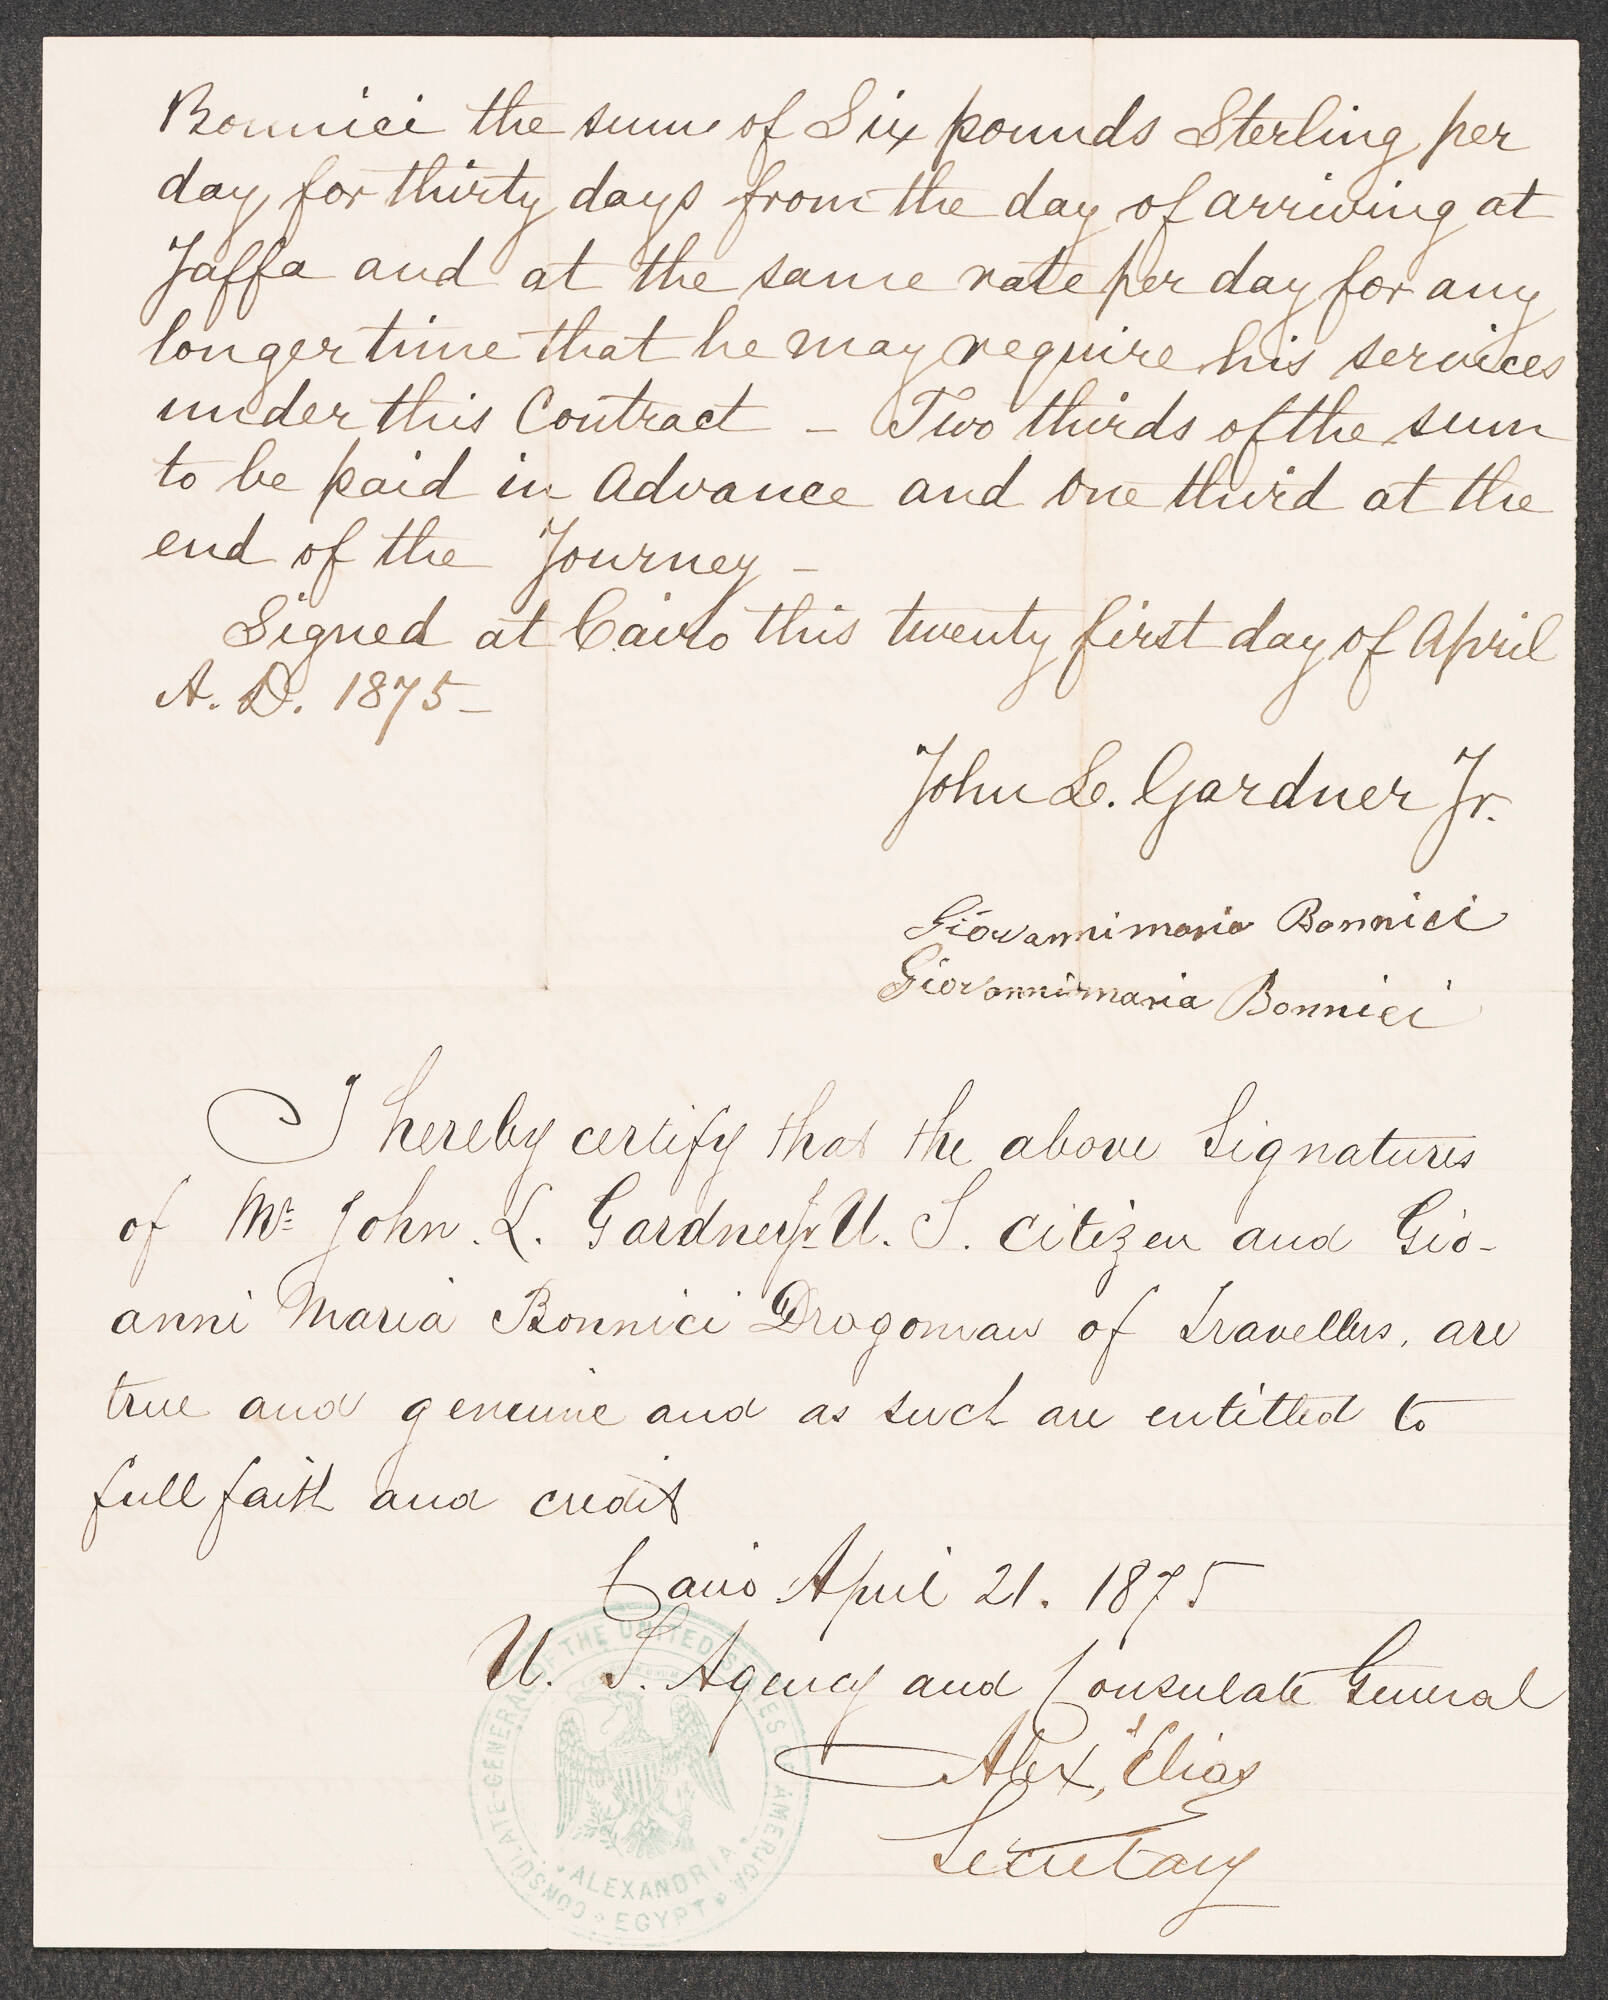 Bonnici the sum of Six pounds Sterling per
day, for thirty days from the day of arriving at
Jaffa and at the same rate per day for any
longer time that he may require his services
under this Contract – Two thirds of the sum
to be paid in advance and one third at the
end of the Journey –
Signed at Cairo this twenty first day of April
A. D. 1875 –
John L. Gardner Jr.
Giovannimaria Bonnici
Giovannimaria Bonnici
I hereby certify that the above Signatures
of Mr. John. L. Gardner Jr U. S. Citizen and Gio-
anni Maria Bonnici Dragoman of travellers, are
true and genuine and as such are entitled to
full faith and credit
Cairo April 21. 1875
U. S. Agency and Consulate General
Alex, Elias
Secretary
CONSULATE-GENERAL OF THE UNITED STATES OF AMERICA
ALEXANDRIA
EGYPT